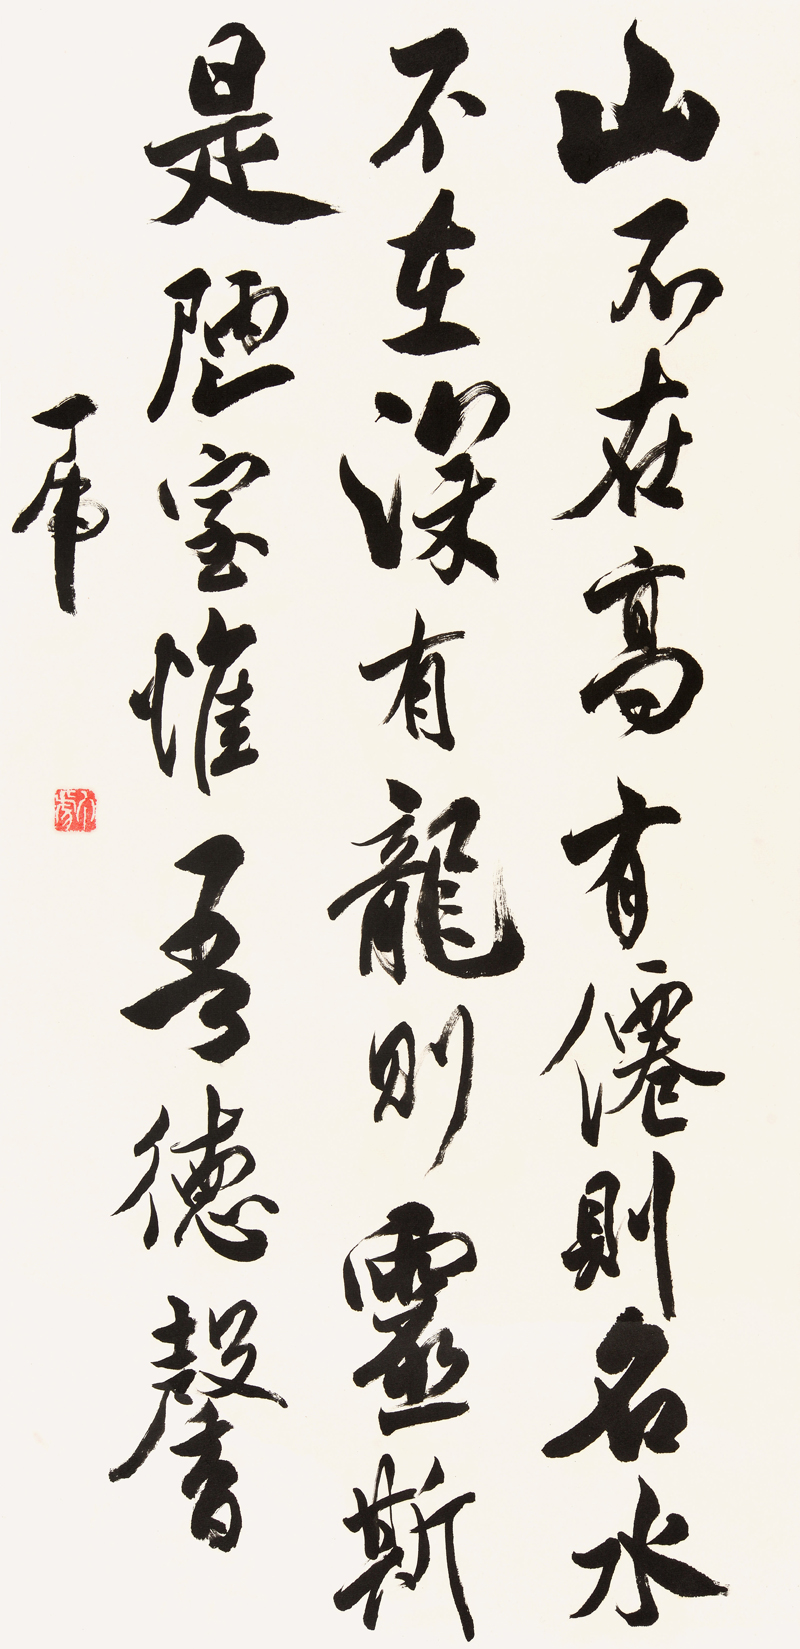 山不在高有僊則名水
不在深有龍則靈斯
是陋室惟吾德馨